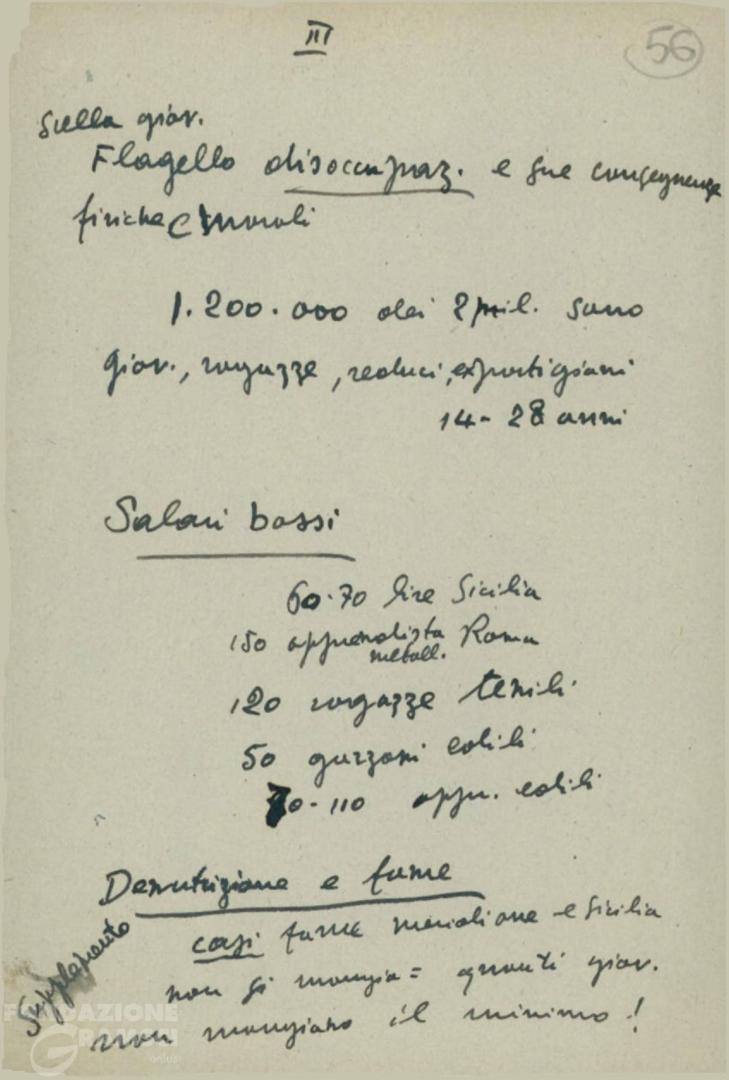 III
56
Sulla giov.
Flagello disoccupaz. e sue conseguenze
fisiche e morali
1.200.000 dei 2 mil. sono
giov., ragazze, reduci, expartigiani
14-28 anni
Salari bassi
60-70 lire Sicilia
150 apprendista Roma
metall.
120 ragazze tessili
50 garzoni edili
70-110 appr. edili
Denutrizione e fame
casi fame meridione e Sicilia
non si mangia = quanti giov.
non mangiano il minimo!
Supplemento
FONDAZIONE
GRAMSCI
onlus